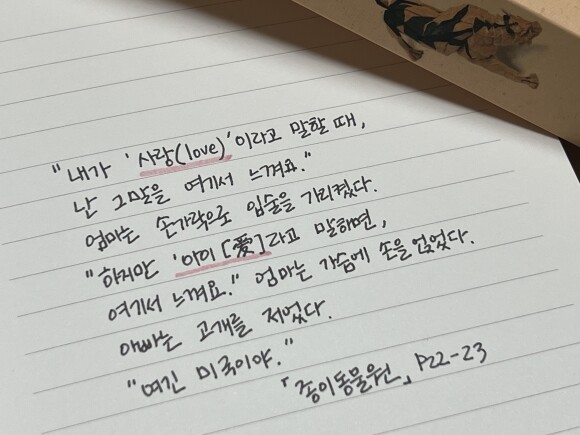 "내가 '사랑(love)'이라고 말할 때,
난 그말을 여기서 느껴요."
엄마는 손가락으로 입술을 가리켰다.
"하지만 '아이[愛]'라고 말하면,
여기서 느껴요." 엄마는 가슴에 손을 얹었다.
아빠는 고개를 저었다.
"여긴 미국이야."
「종이동물원」 P22-23